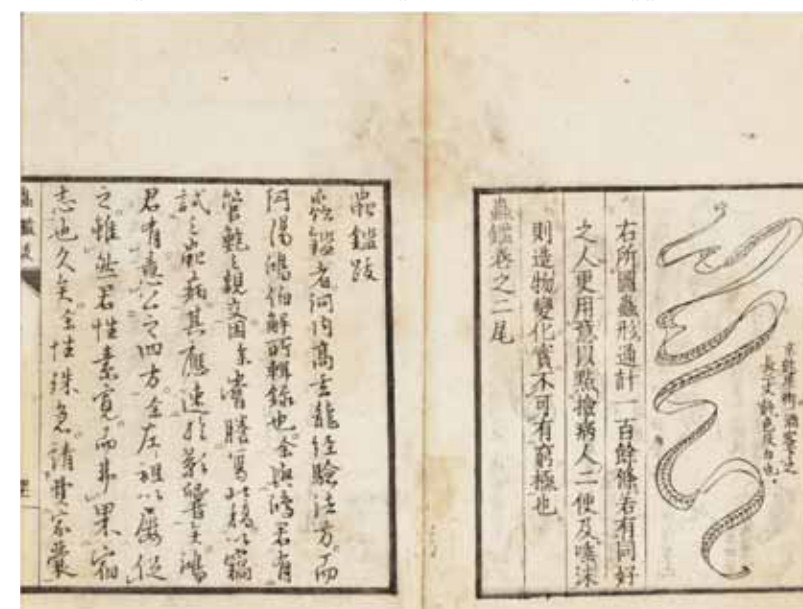 右所圖蟲形通計一百餘條若有同好
之人更用意以點撿病人二便及唾沫
則造物變化實不可有窮極也
蟲鑑卷之二尾
蟲鑑跋
蟲鑑者河内高玄龍經驗法方而
阿陽鴻伯解所輯録也余與鴻君有
管鮑之親交因余嘗謄寫此稿以竊
試之蟲病其應速於影響矣鴻
君有意公之四方余左袒以屢促
之雖然君性素寛而果宿
志也久矣余性殊急請家囊